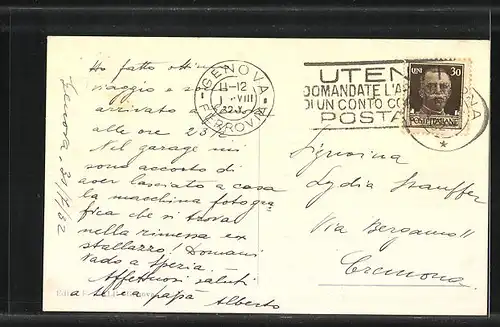 Genova, 30/7/32
Ho fatto
viaggio e so
arrivato a
alle ore 23½
Nel garage mi
sono accorto di
aver lasciato a casa
la macchina fotogra
fica che si trova
nella rimessa ex
stallazzo! Domani
vado a Spezia.
Affettuosi saluti
a te e a papà Alberto
GENOVA
11-12
VIII
32·X
FERROVIA
UTEN
DOMANDATE L'A
DI UN CONTO CO
POSTA
UNI 30
POSTE ITALIANE
Signorina
Lydia Stauffer
Via Bergamo 11
Cremona